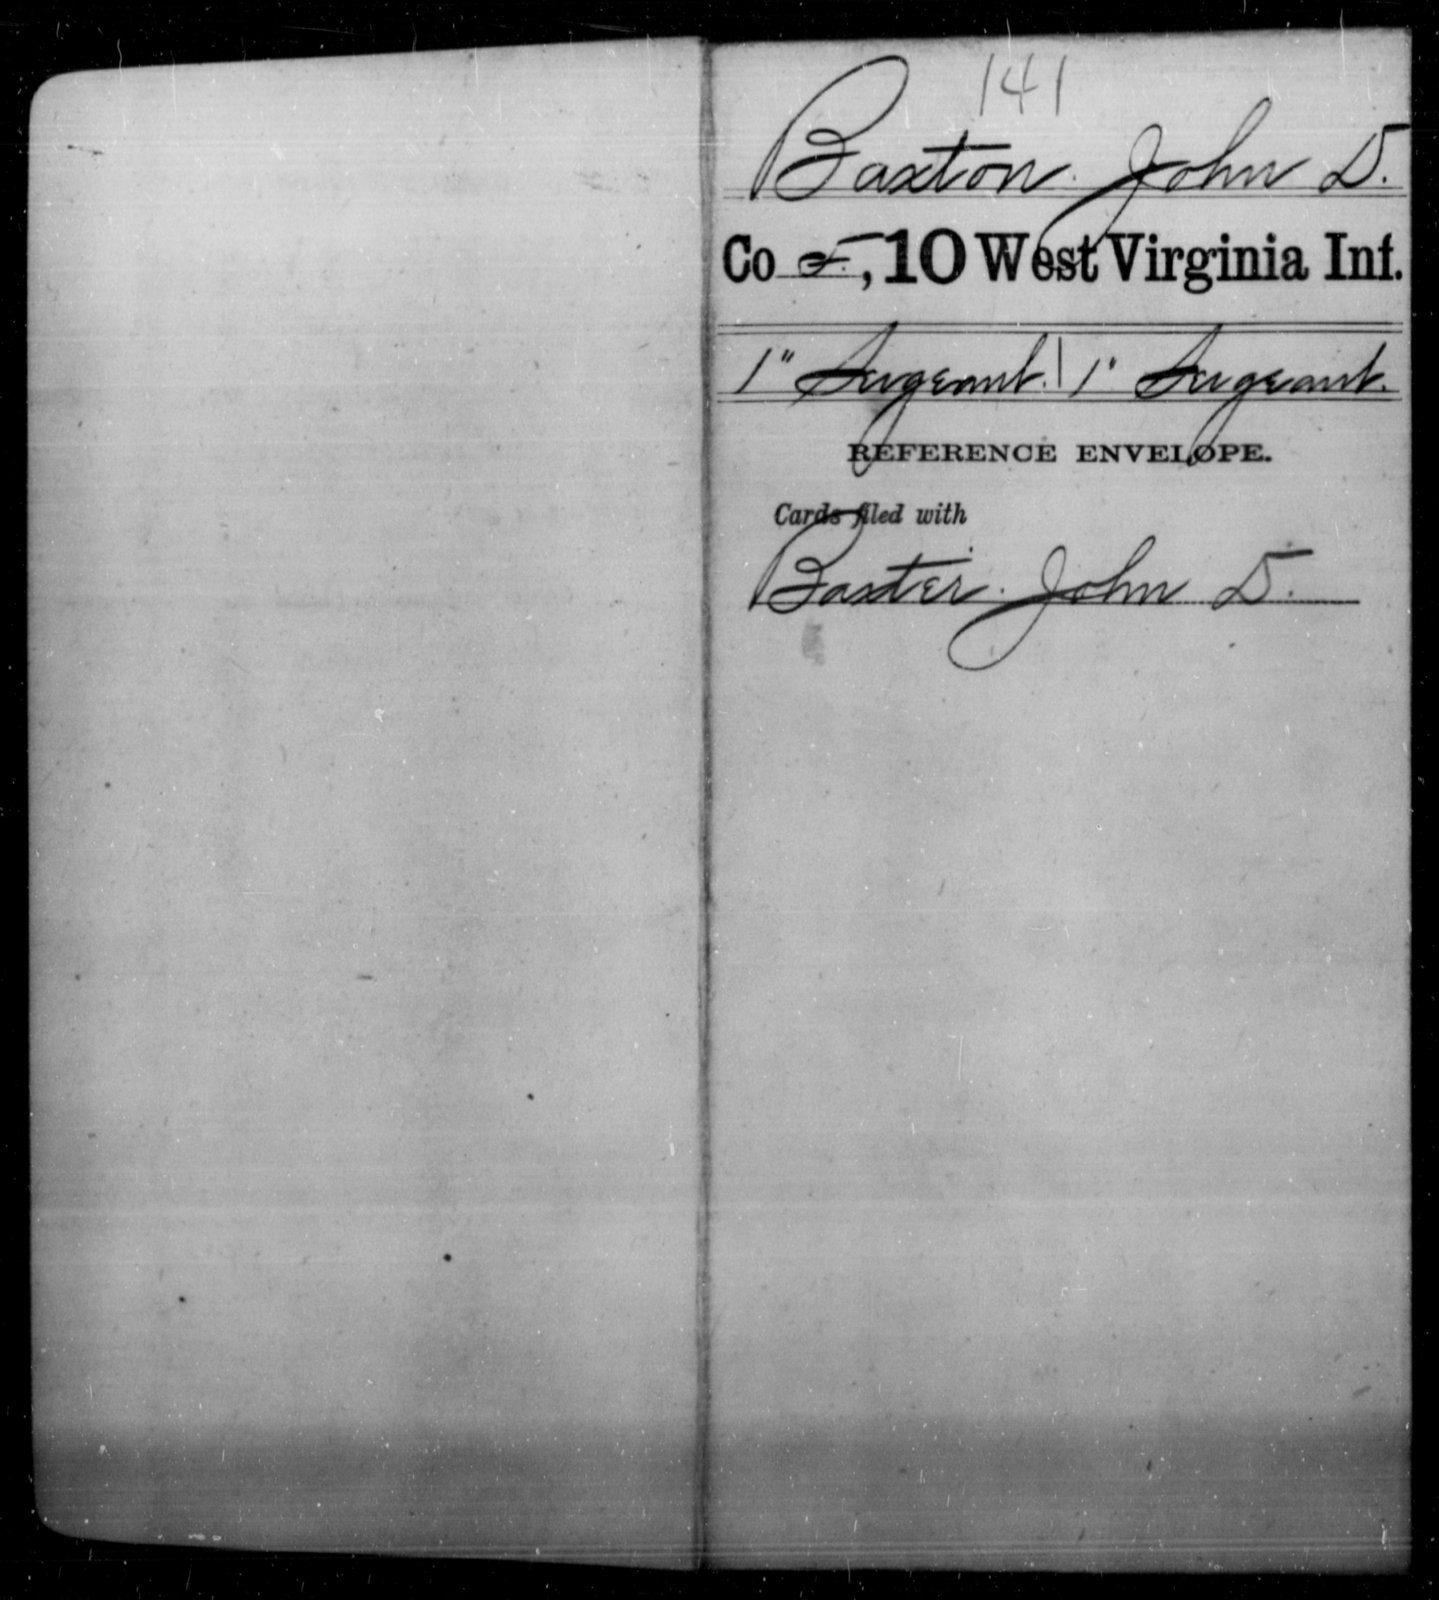 141
Baxton. John D.
Co F., 10 West Virginia Inf.
1" Sergeant. | 1" Sergeant.
REFERENCE ENVELOPE.
Cards filed with
Baxter. John D.